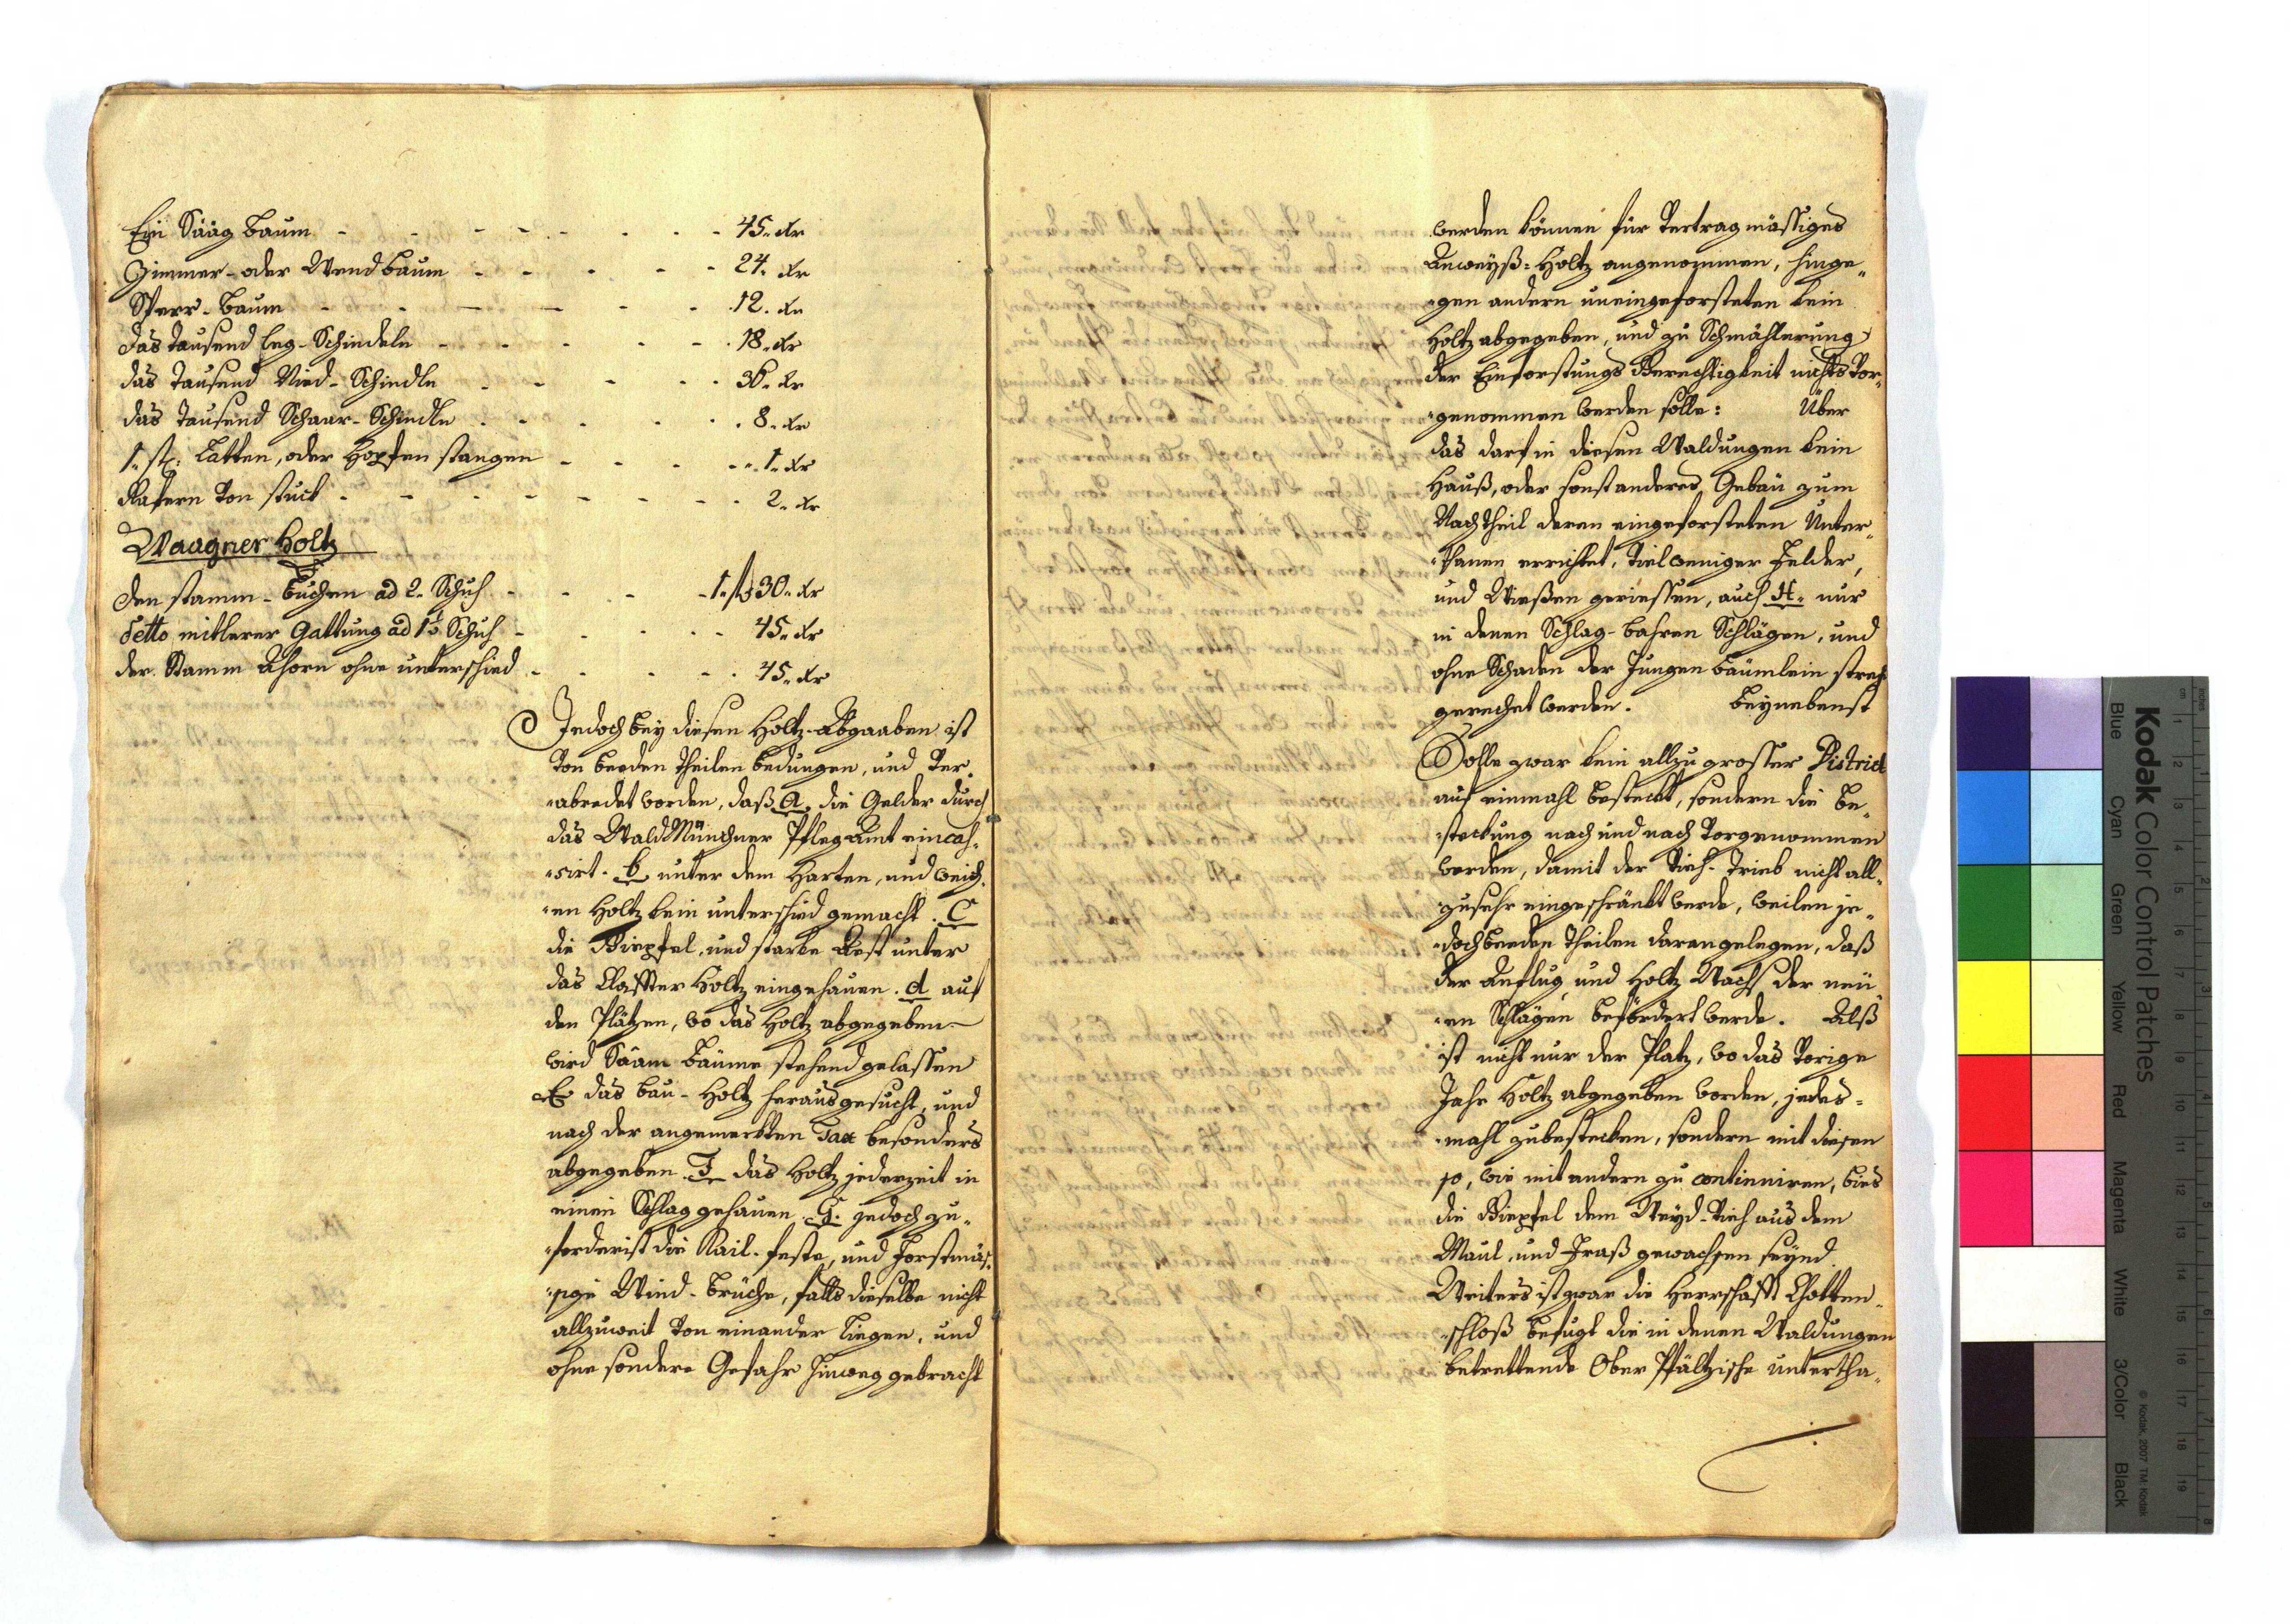 Ein Sääg baum - - - - - - - - 45. kr
Zimmer- oder Wend baum - - - - - 24. kr
Sperr-baum - - - - - - - 12. kr
das tausend leg-Schindeln - - - - - 18. kr
das tausend Nied-Schindln - - - - - 36. kr
das tausend Schaar-Schindln - - - - - 8. kr
1. st: Latten, oder Hopfen stangen - - - - 1. kr
Rafern von stuck - - - - - - - 2. kr
Waagner Holtz
den stamm-buchen ad 2. Schuh - - - 1. fl 30. kr
detto mittlerer Gattung ad 1½ Schuh - - - - 45. kr
der Stamm Ahorn ohne unterschied - - - - 45. kr
Jedoch bey diesen Holtz-Abgaaben ist
von beeden theilen bedungen, und ver„
„abredet worden, daß a. die Gelder durch
das WaldMünchner Pfleg Amt eincas„
„sirt. b unter dem Harten, und weich„
„en Holtz kein unterschied gemacht. C
die Wiepfel, und starke Aest unter
das Claffter Holtz eingehauen. d auf
den Plätzen, wo das Holtz abgegeben
wird Saam bäume stehend gelassen
E das bau-Holtz herausgesucht, und
nach der angemerkten Tax besonders
abgegeben. F das Holtz jederzeit in
einen Schlag gehauen. G. jedoch zu„
„forderist die Rail-feste, und Forstmäs„
„sige Wind-brüche, falls dieselbe nicht
allzuweit von einander liegen, und
ohne sondere Gefahr hinweg gebracht
werden können für Vertragmässiges
Anweyß-Holtz angenommen, hinge„
„gen andern uneingeforsteten kein
Holtz abgegeben, und zu Schmählerung
der Einforstungs Berechtigkeit nichts vor„
„genommen werden solle: Über
das darf in diesen Waldungen kein
Hauß, oder sonst anderes Gebäu zum
Nachtheil deren eingeforsteten Unter„
„thanen errichtet, vielweniger Felder,
und Wießen gerießen, auch H. nur
in denen Schlag-bahren Schlägen, und
ohne Schaden der Jungen bäumlein streh
gerechet werden. Beynebenst
Solle zwar kein allzu grosser District
auf einmahl besteckt, sondern die be„
„steckung nach und nach vorgenommen
werden, damit der Vieh-trieb nicht all„
„zusehr eingeschränkt werde, weilen je„
„doch beeden theilen darangelegen, daß
der Anflug und Holtz Wachs der neü„
„en Schlägen befördert werde. Alß
ist nicht nur der Platz, wo das vorige
Jahr Holtz abgegeben worden, jedes„
„mahl zubestecken, sondern mit diesen
so, wie mit andern zu continuiren, bies
die Wiepfel dem Weyd-Vieh aus dem
Maul, und Fraß gewachsen seynd.
Weiters ist zwar die Herrschafft Chotten„
„schloß befugt die in denen Waldungen
betrettende Ober Pfältzische untertha„
Kodak Color Control Patches
Blue Cyan Green Yellow Red Magenta White 3/Color Black
© Kodak, 2007 TM: Kodak